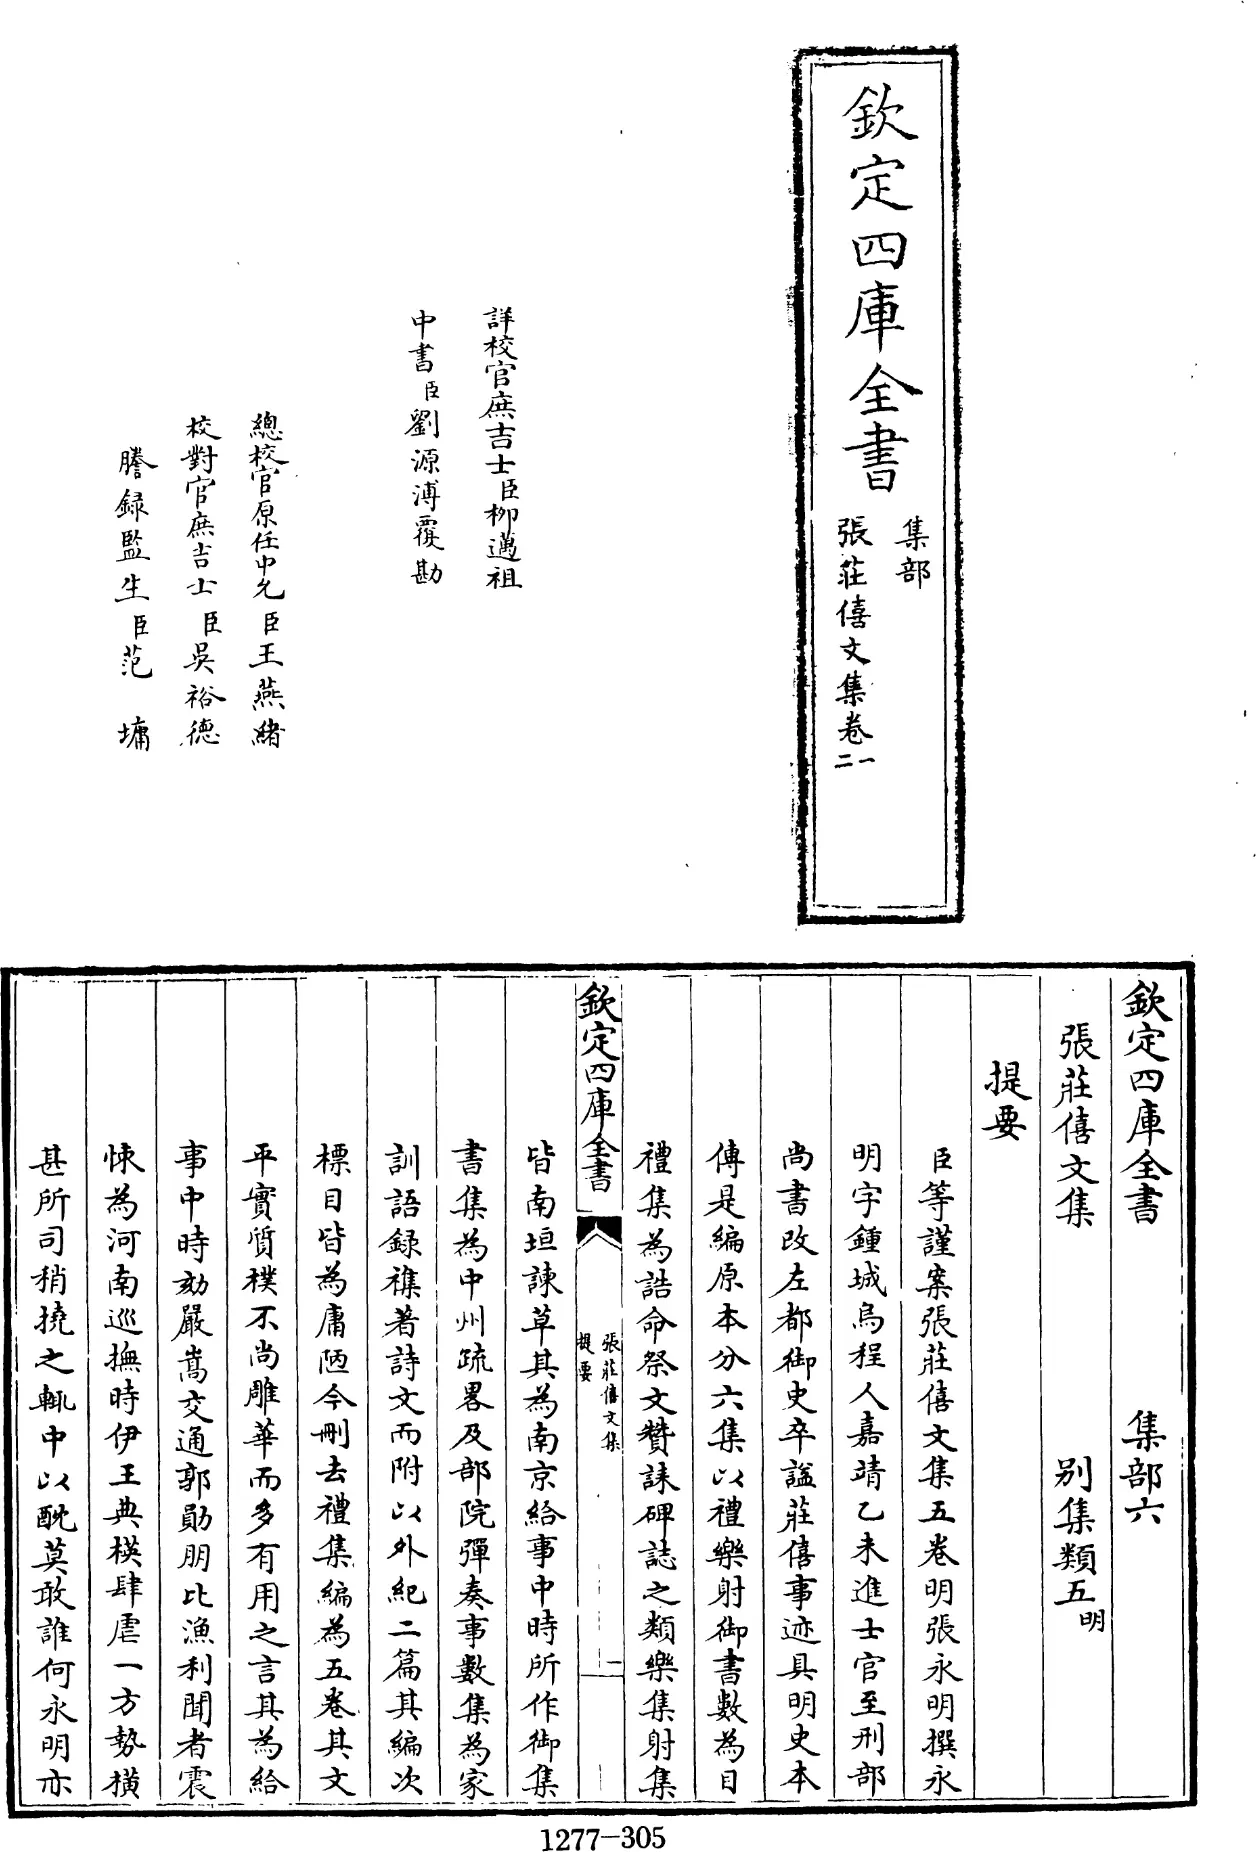 欽定四庫全書
集部
張莊僖文集卷一二
詳校官庶吉士臣柳邁祖
中書臣劉源溥覆勘
總校官原任中允臣王燕緒
校對官庶吉士臣吳裕德
謄録監生臣范墉
欽定四庫全書 集部六
張莊僖文集 别集類五明
提要
臣等謹案張莊僖文集五卷明張永明撰永
明字鍾城烏程人嘉靖乙未進士官至刑部
尚書改左都御史卒諡莊僖事迹具明史本
傳是編原本分六集以禮樂射御書數為目
禮集為誥命祭文贊誄碑誌之類樂集射集
欽定四庫全書
張莊僖文集
提要
一
皆南垣諫草其為南京給事中時所作御集
書集為中州疏畧及部院彈奏事數集為家
訓語録襍著詩文而附以外紀二篇其編次
標目皆為庸陋今刪去禮集編為五卷其文
平實質樸不尚雕華而多有用之言其為給
事中時劾嚴嵩交通郭勛朋比漁利聞者震
悚為河南巡撫時伊王典楧肆虐一方勢橫
甚所司稍撓之輒中以酖莫敢誰何永明亦
1277-305